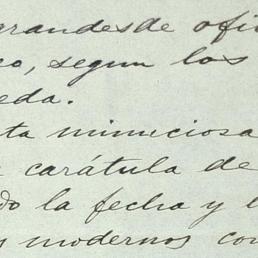 grandes de ofi
o, segun los
eda.
ta minuciosa
carátula de
do la fecha y l
s modernos con